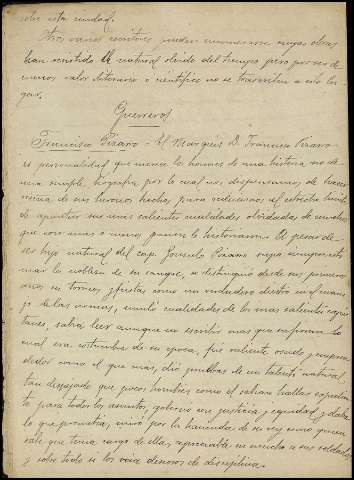 sobre esta ciudad.
Otros varios escritores pueden enumerarse cuyas obras
han sentido el natural olvido del tiempo pero por ser de
menos valor literario o científico no se trascriben a este lu
gar.
Guerreros
Francisco Pizarro - El Marqués D. Francisco Pizarro
es personalidad que merece los honores de una historia no de
una simple biografía por lo cual nos dispensamos de hacer
reseña de sus heroicos hechos, para reducirnos al estrecho límite
de apuntar sus más salientes cualidades olvidadas de muchos
que poco más o menos ponen los historiadores. A pesar de
ser hijo natural del cap. Gonzalo Pizarro supo
mar la nobleza de su sangre, se distinguió desde sus primeros
años en torneos y fiestas como un verdadero diestro en el mane
jo de las armas, reunió cualidades de los más salientes capi
tanes, sabía leer aunque no escribir más que su firma lo
cual era costumbre de su época, fué valiente osado y empren
dedor como el que más, dió pruebas de un talento natural
tan despejado que pocos hombres como él sabían hallar expedien
te para todos los asuntos, gobernó con justicia y equidad y daba
lo que prometía, miró por la hacienda de su rey como quien
sabe que tenía cargo de ella, reprendía mucho a sus soldados
y sobre todo si los veía deseosos de disciplina.